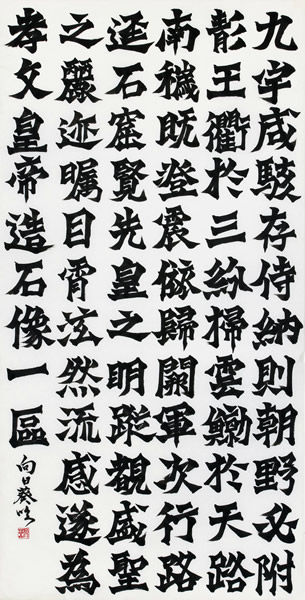 九宇咸駭存侍納則朝野必附
王衢於三紛掃雲鯨於天路
南穢既澄震旅歸闕軍次行路
逕石窟覽先皇之明蹤覩盛聖
之麗迹矚目霄泫然流感遂為
孝文皇帝造石像一區
向日葵